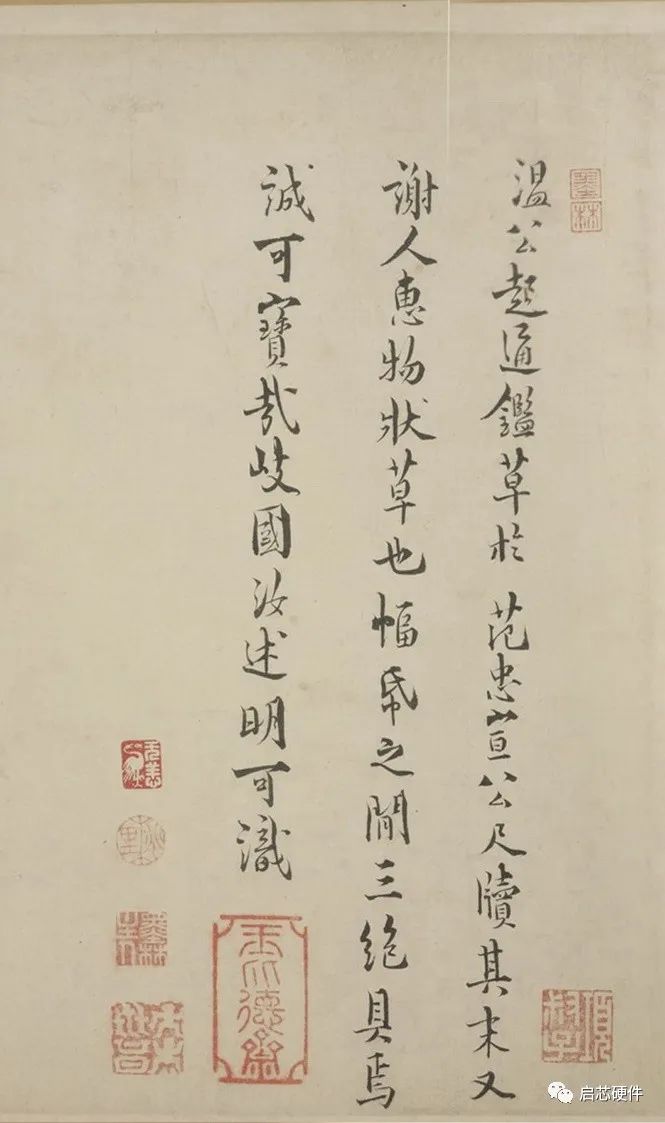 溫公起通鑑草於范忠宣公尺牘其末又
謝人惠物狀草也幅帋之閒三絶具焉
誠可寶哉岐國汝述明可識
墨林
項叔子
启芯硬件